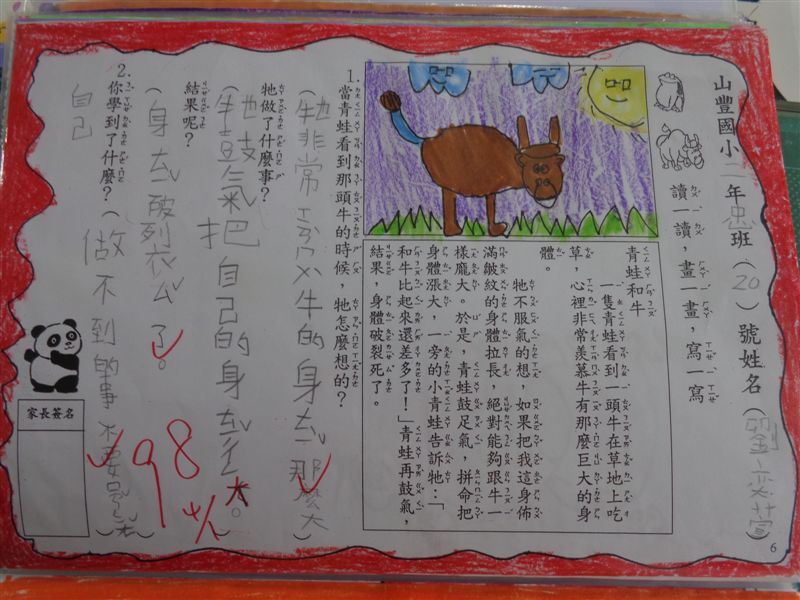 山豐國小二年忠班（20）號姓名（劉）
讀一讀，畫一畫，寫一寫
青蛙和牛
一隻青蛙看到一頭牛在草地上吃
草，心裡非常羨慕牛有那麼巨大的身
體。
牠不服氣的想，如果把我這身佈
滿皺紋的身體拉長，絕對能夠跟牛一
樣龐大。於是，青蛙鼓足氣，拼命把
身體漲大，一旁的小青蛙告訴牠：「
和牛比起來還差多了！」青蛙再鼓氣，
結果，身體破裂死了。
1.當青蛙看到那頭牛的時候，牠怎麼想的？
（牠非常ㄒㄧㄢˋㄇㄨˋ牛的身ㄊㄧˇ那麼大）
牠做了什麼事？
（牠鼓氣把自己的身ㄊㄧˇ大。
結果呢？
（身ㄊㄧˇ破列衣ㄙˇ了。
2.你學到了什麼？（做不到的事不要
自己
98
家長簽名
6